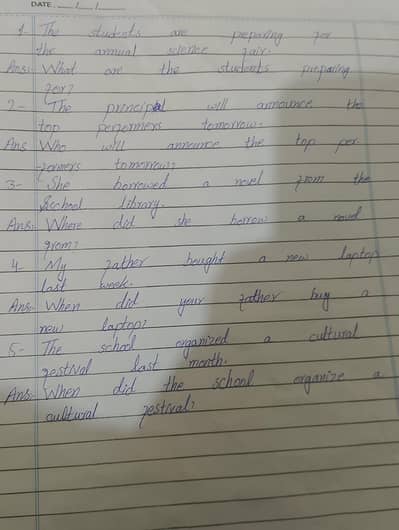 DATE. __/__/__
1- The students are preparing for
the annual science fair.
Ans:- What are the students preparing
for?
2- The principal will announce the
top performers tomorrow.
Ans Who will announce the top per
-formers tomorrow?
3- She borrowed a novel from the
School library.
Ans:- Where did she borrow a novel
from?
4- My father bought a new laptop
last week.
Ans:- When did your father buy a
new laptop?
5- The school organized a cultural
festival last month.
Ans:- When did the school organize a
cultural festival?